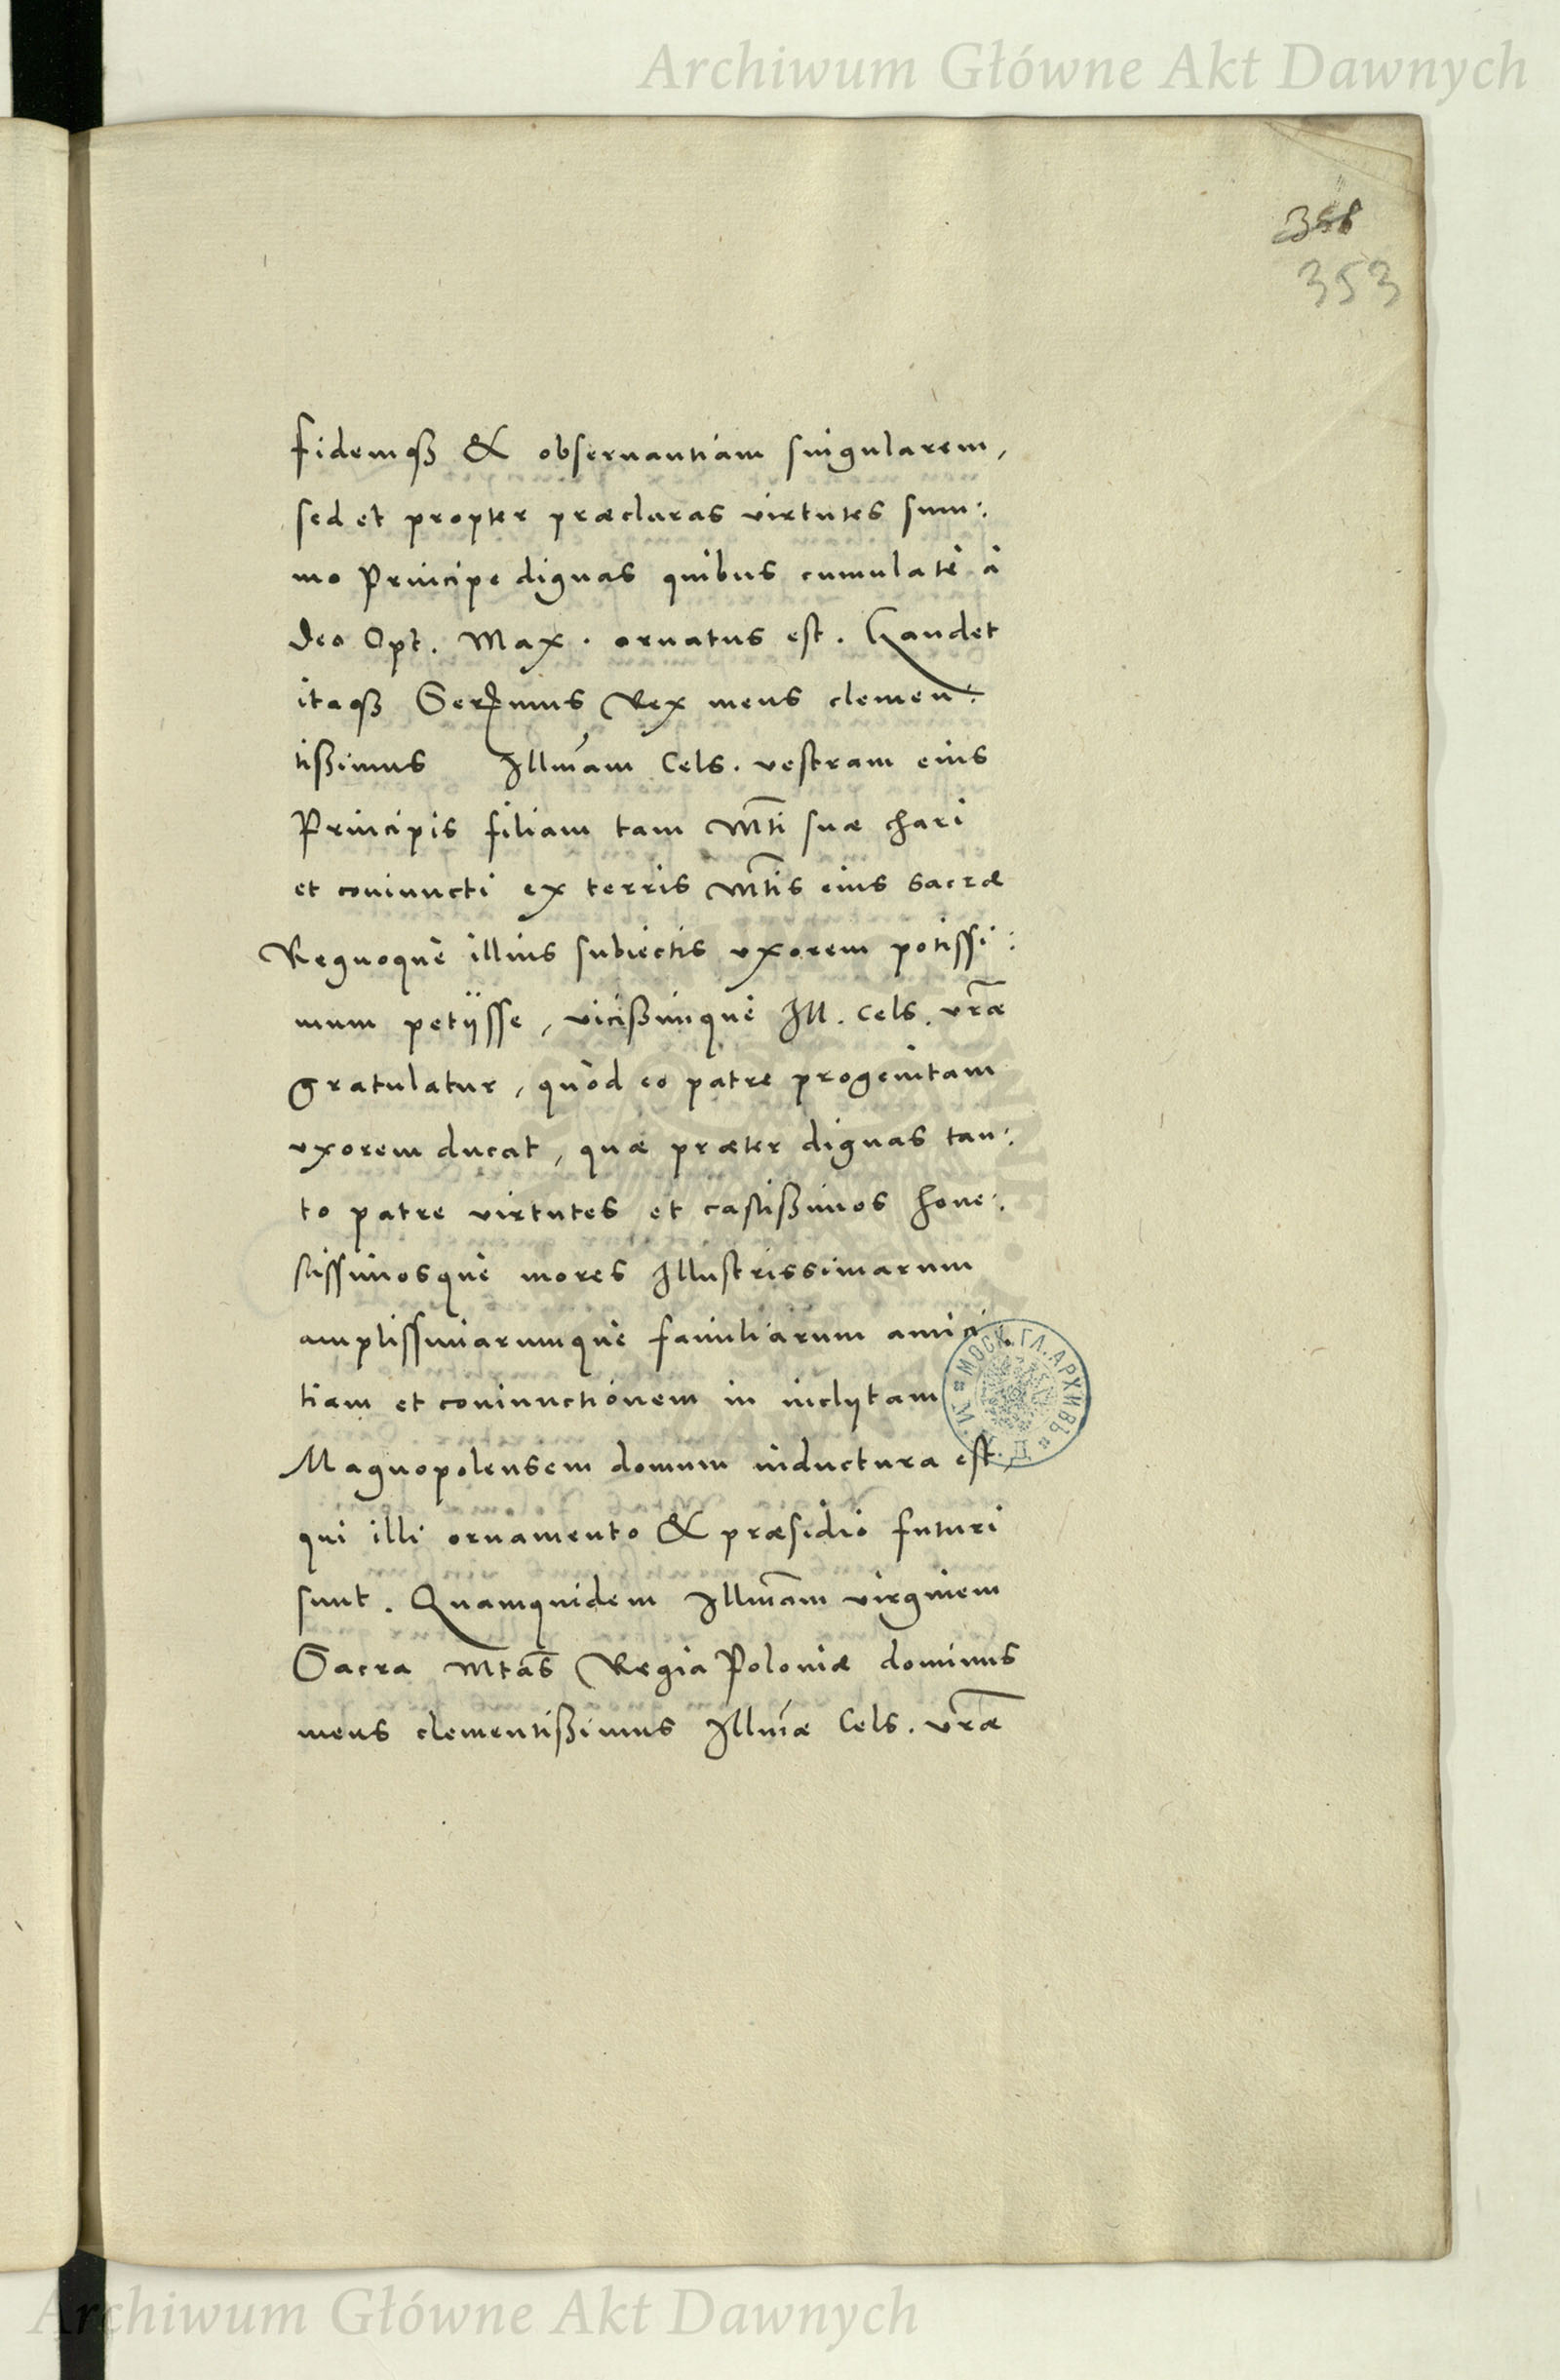 Archiwum Główne Akt Dawnych
353
fidemqȝ & obseruantiam singularem,
sed et propter præclaras virtutes sum:
mo Principe dignas quibus cumulatè à
Deo Opt. Max. ornatus est. Gaudet
itaqȝ Serenmus Rex meus clemen:
tißimus Illmam Cels. vestram eius
Principis filiam tam Mti suæ chari
et coniuncti ex terris Mtis eius sacræ
Regnoquè illius subiectis vxorem potissi:
mum petijsse, vicißimquè Ill. Cels. vræ
gratulatur, quòd eo patre progenitam
vxorem ducat, quæ præter dignas tan:
to patre virtutes et castißimos hone:
stissimosquè mores Illustrissimarum
amplissimarumquè familiarum amici:
tiam et coniunctionem in inclytam
Magnopolensem domum inductura est,
qui illi ornamento & præsidio futuri
sunt. Quamquidem Illmam virginem
Sacra Mtas Regia Poloniæ dominus
meus clementißimus Illmæ Cels. vræ
МОСК. ГЛ. АРХИВЪ
Archiwum Główne Akt Dawnych